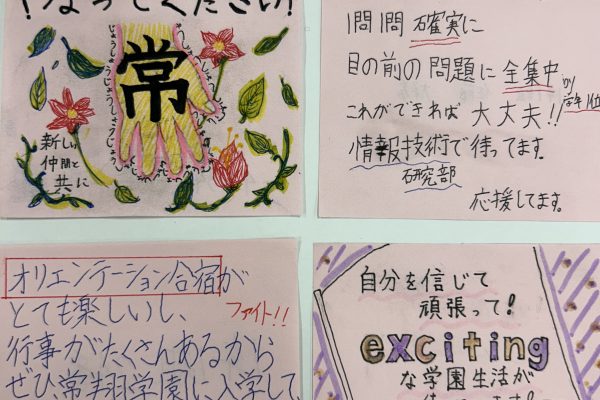 なってください!
常
じょうじょうじょうじょう
新しい
仲間と
共に
1問1問 確実に
目の前の問題に全集中
by 学年1位
これができれば 大丈夫!!
情報技術で待ってます。
研究部
応援してます。
オリエンテーション合宿が
とても楽しいし、
ファイト!!
行事がたくさんあるから
ぜひ、常翔学園に入学して、
自分を信じて
頑張って!
exciting
な学園生活が